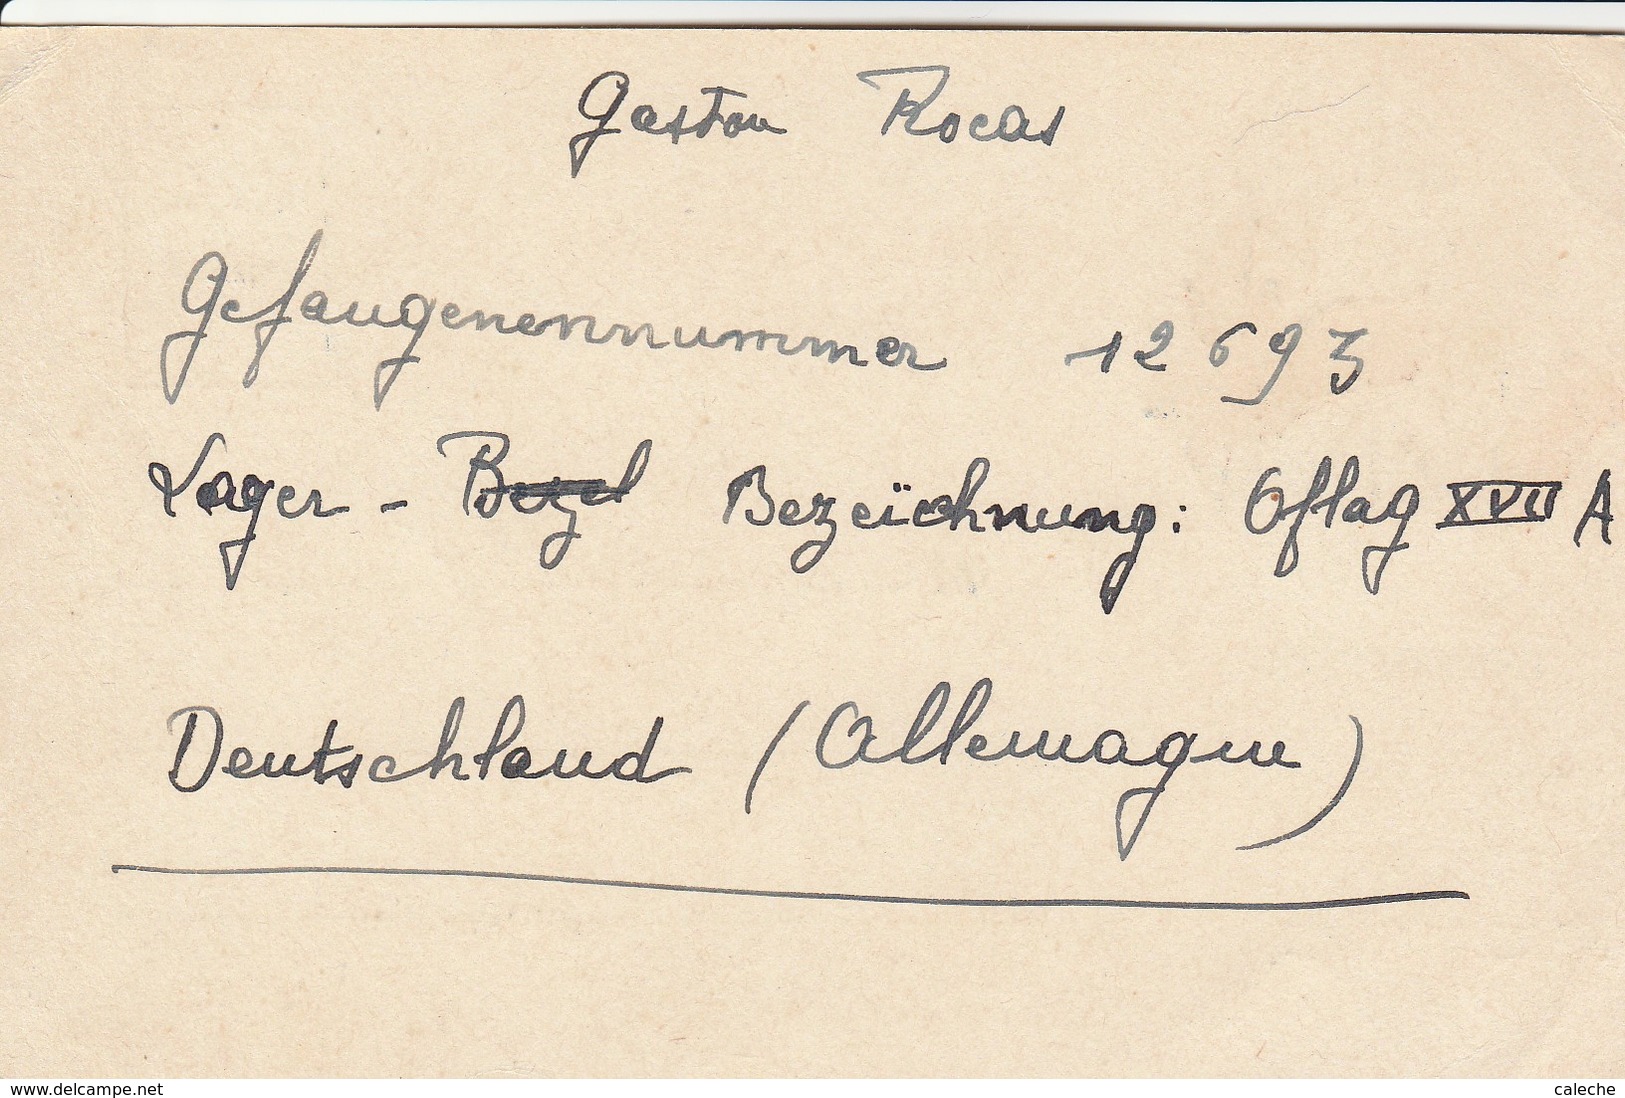 Gaston Rocas
Gefangenennummer 12693
Lager - Bezel Bezeïchnung: Oflag XVII A
Deutschland (Allemagne)
www.delcampe.net
caleche